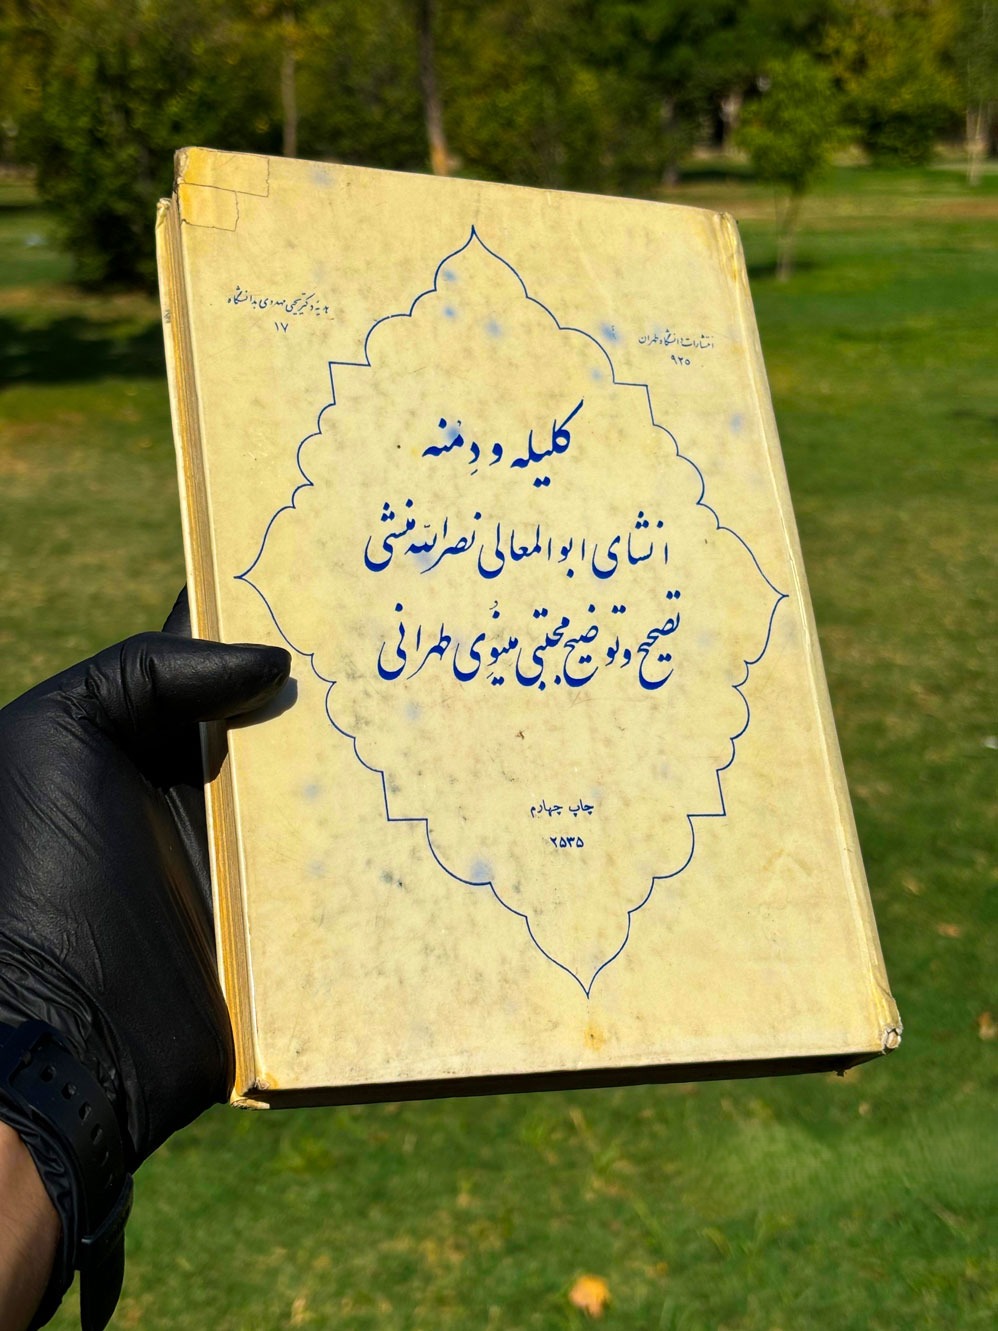 انتشارات دانشگاه طهران
۹۲۵
هدیهٔ دکتر یحیی مهدوی بدانشگاه
۱۷
کلیله و دِمْنه
انشای ابوالمعالی نصراللّه منشی
تصحیح و توضیح مجتبی مینُوِی طهرانی
چاپ چهارم
۲۵۳۵